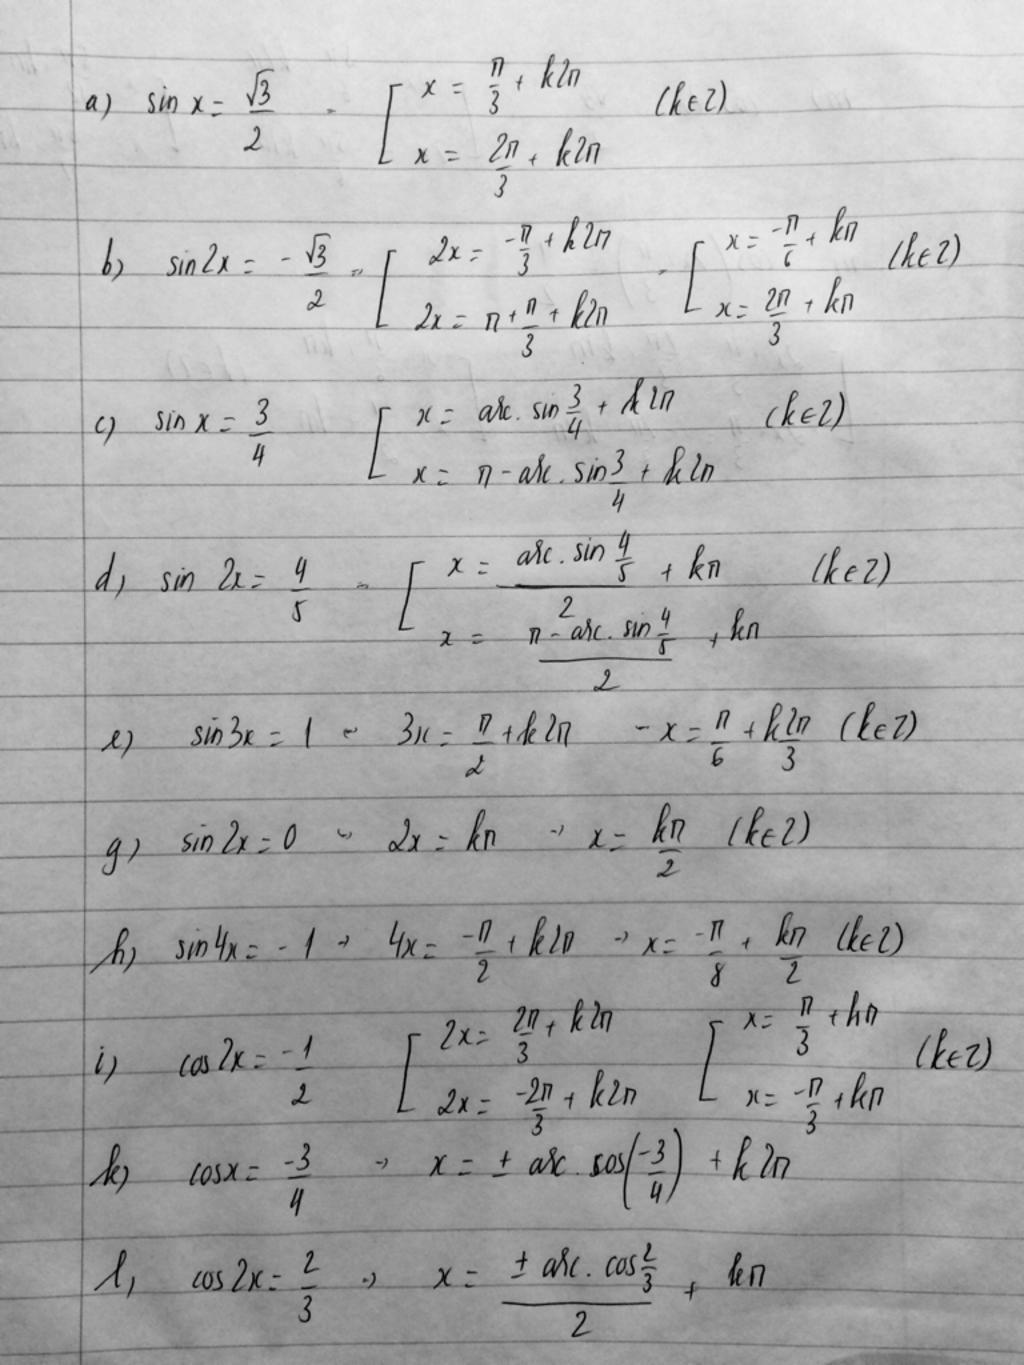 a) sin x = √3/2 - [ x = π/3 + k2π (k∈Z)
x = 2π/3 + k2π
b) sin2x = -√3/2 - [ 2x = -π/3 + k2π - [ x = -π/6 + kπ (k∈Z)
2x = π + π/3 + k2π x = 2π/3 + kπ
c) sin x = 3/4 [ x = arc. sin 3/4 + k2π (k∈Z)
x = π - arc. sin 3/4 + k2π
d) sin 2x = 4/5 - [ x = (arc. sin 4/5)/2 + kπ (k∈Z)
x = (π - arc. sin 4/5)/2 + kπ
e) sin3x = 1 - 3x = π/2 + k2π - x = π/6 + k2π/3 (k∈Z)
g) sin2x = 0 → 2x = kπ → x = kπ/2 (k∈Z)
h) sin4x = -1 → 4x = -π/2 + k2π → x = -π/8 + kπ/2 (k∈Z)
i) cos2x = -1/2 [ 2x = 2π/3 + k2π [ x = π/3 + kπ (k∈Z)
2x = -2π/3 + k2π x = -π/3 + kπ
k) cosx = -3/4 → x = ± arc. cos(-3/4) + k2π
l, cos2x = 2/3 → x = (± arc. cos 2/3)/2 + kπ